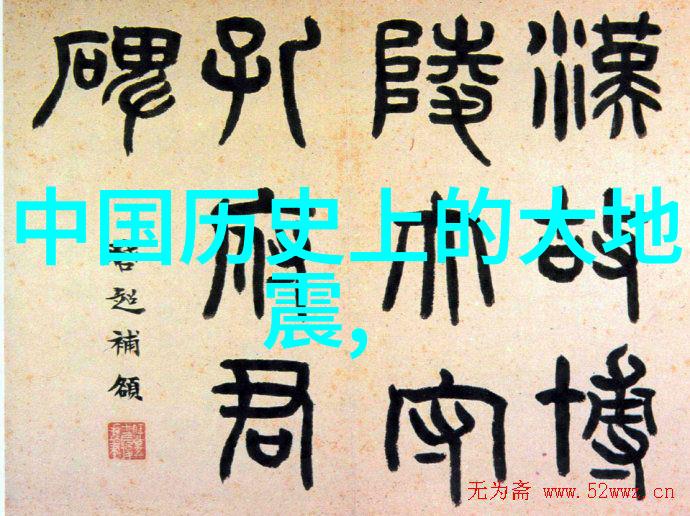 中国历史上的大地
震,
漢故博
陵太守
孔府君
碑
超補
无为斋 www.52wwz.cn